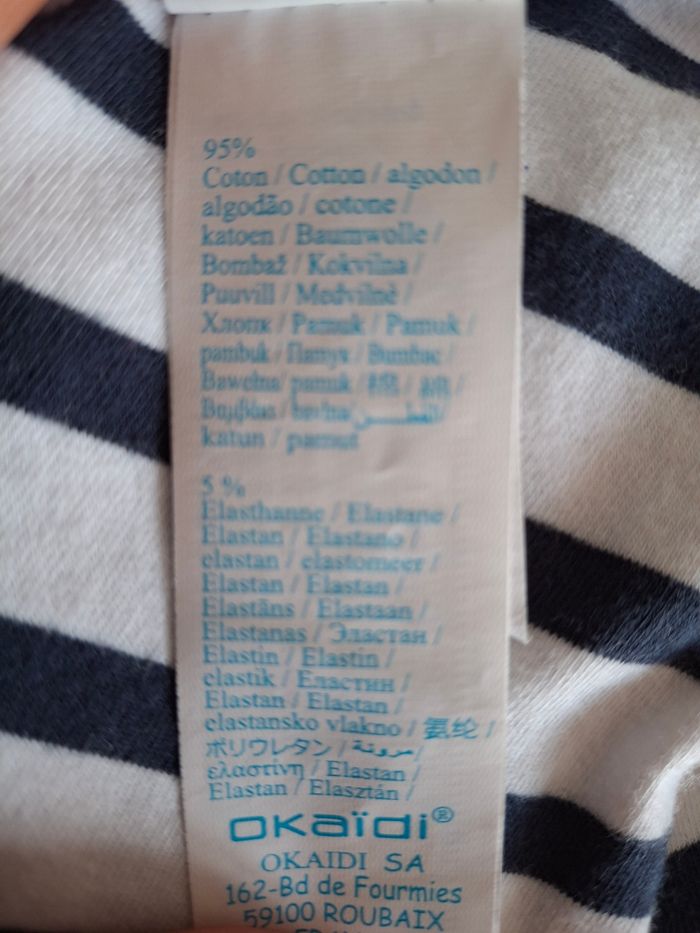 95%
Coton / Cotton / algodon /
algodão / cotone /
katoen / Baumwolle /
Bombaž / Kokvilna /
Puuvill / Medvilnė /
Хлопк / Pamuk / Pamuk /
pambuk / Памук / Bumbac /
Bawełna / pamuk / 棉 / 綿 /
Βαμβάκι / bavlna / القطن /
katun / pamut
5 %
Elasthanne / Elastane /
Elastan / Elastano /
elastan / elastomeer /
Elastan / Elastan /
Elastāns / Elastaan /
Elastanas / Эластан /
Elastin / Elastin /
elastik / Еластин /
Elastan / Elastan /
elastansko vlakno / 氨纶 /
ポリウレタン / مرونة /
ελαστίνη / Elastan /
Elastan / Elasztán /
OKaïdi®
OKAIDI SA
162-Bd de Fourmies
59100 ROUBAIX